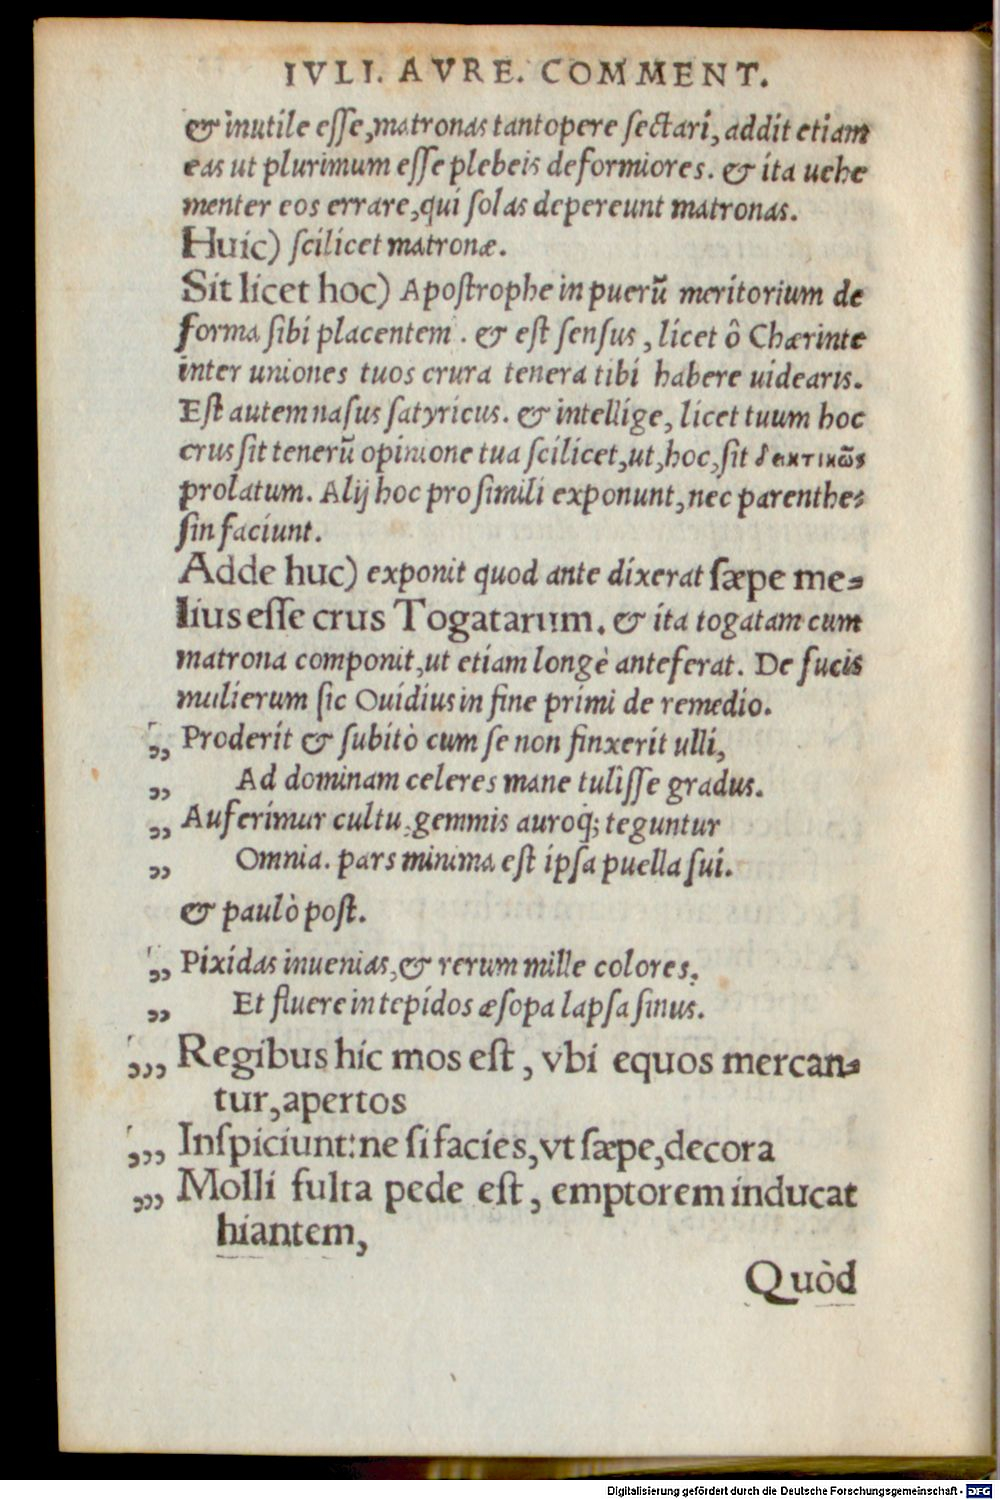 IVLI. AVRE. COMMENT.
& inutile eſſe, matronas tantopere ſectari, addit etiam
eas ut plurimum eſſe plebeis deformiores. & ita uehe
menter eos errare, qui ſolas depereunt matronas.
Huic) ſcilicet matronæ.
Sit licet hoc) Apoſtrophe in puerũ meritorium de
forma ſibi placentem. & eſt ſenſus, licet ô Chærinte
inter uniones tuos crura tenera tibi habere uidearis.
Eſt autem naſus ſatyricus. & intellige, licet tuum hoc
crus ſit tenerũ opinione tua ſcilicet, ut, hoc, ſit δεικτικῶς
prolatum. Alij hoc pro ſimili exponunt, nec parenthe-
ſin faciunt.
Adde huc) exponit quod ante dixerat ſæpe me-
lius eſſe crus Togatarum. & ita togatam cum
matrona componit, ut etiam longè anteferat. De fucis
mulierum ſic Ouidius in fine primi de remedio.
„ Proderit & ſubitò cum ſe non finxerit ulli,
„ Ad dominam celeres mane tuliſſe gradus.
„ Auferimur cultu, gemmis auroq; teguntur
„ Omnia. pars minima eſt ipſa puella ſui.
& paulò poſt.
„ Pixidas inuenias, & rerum mille colores,
„ Et fluere in tepidos æſopa lapſa ſinus.
„, Regibus hic mos eſt, vbi equos mercan-
tur, apertos
„, Inſpiciunt: ne ſi facies, vt ſæpe, decora
„, Molli fulta pede eſt, emptorem inducat
hiantem,
Quòd
Digitalisierung gefördert durch die Deutsche Forschungsgemeinschaft - DFG